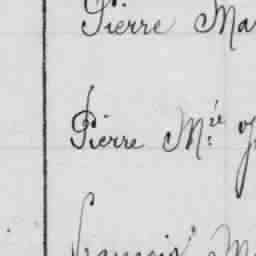 Pierre Ma
Pierre M.ie
François M